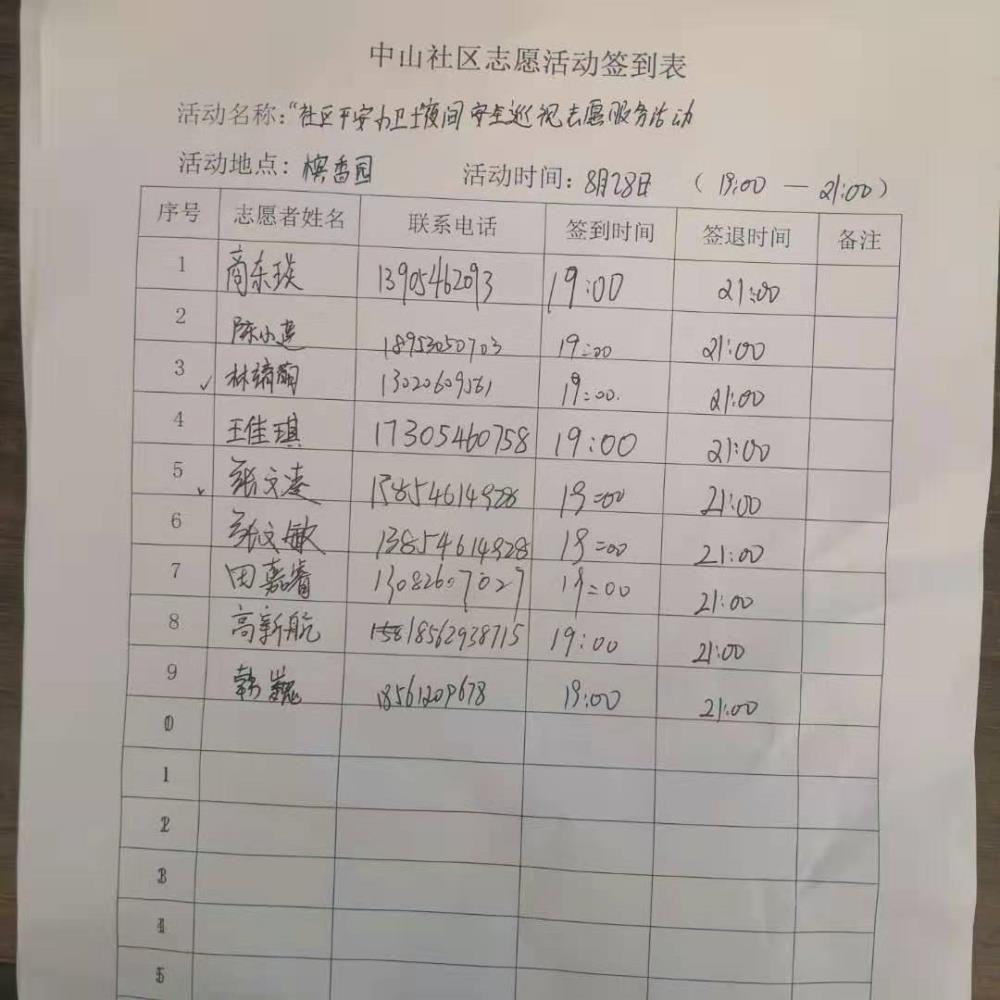 中山社区志愿活动签到表
活动名称:“社区平安小卫士夜间安全巡视志愿服务活动
活动地点: 槟香园 活动时间: 8月28日 (19:00 — 21:00)
序号 志愿者姓名 联系电话 签到时间 签退时间 备注
1 商东瑛 13905462093 19:00 21:00
2 陈小莲 18953050703 19:00 21:00
3 ✓ 林 13020609561 19:00. 21:00
4 王佳琪 17305460758 19:00 21:00
5 ✓ 张文凌 13854614928 19:00 21:00
6 张文敏 13854614928 19:00 21:00
7 田嘉睿 13082607027 19:00 21:00
8 高新航 18562938715 19:00 21:00
9 韩巍 18561209678 19:00 21:00
0
1
2
3
4
5